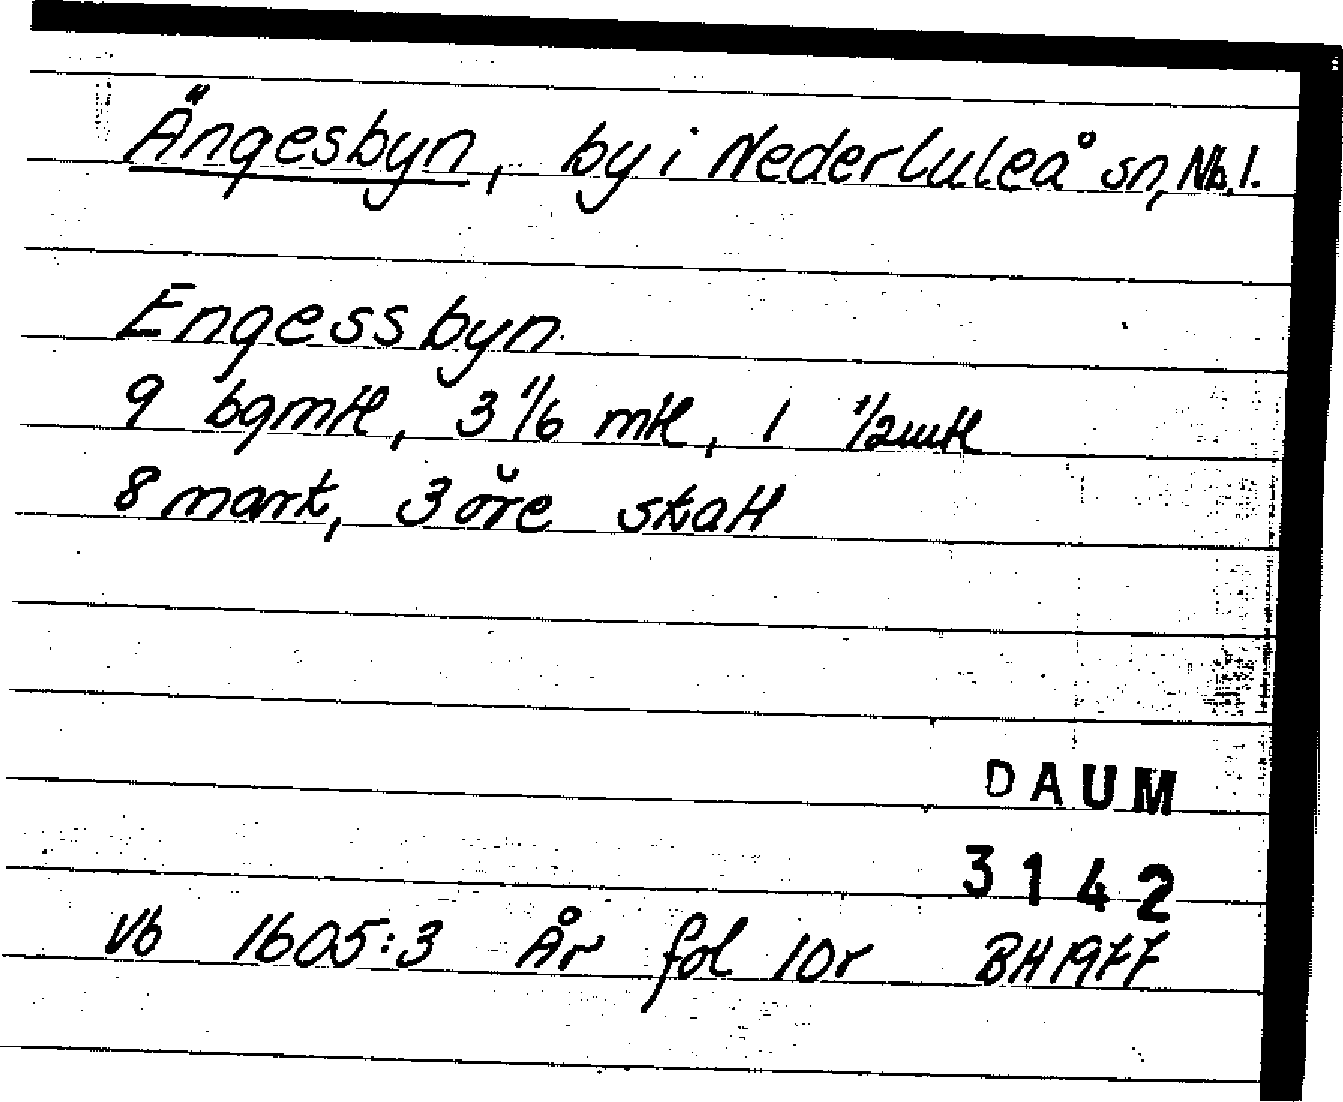 Ängesbyn, by i Nederluleå sn, Nb. l.
Engessbyn
9 bgmtl, 3 1/6 mtl, 1 1/2mtl
8 mark, 3 öre skatt
DAUM
3142
Vb 1605:3 År fol 10r BH 1977